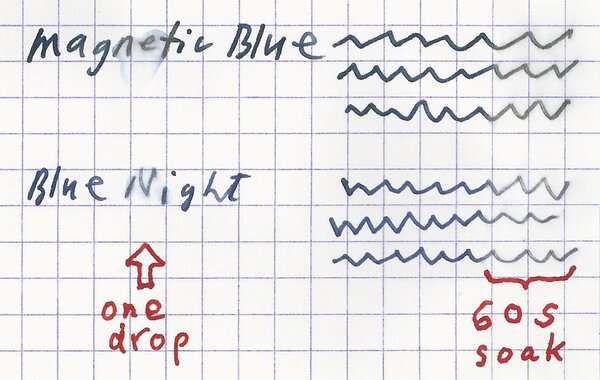 Magnetic Blue
Blue Night
one
drop
60s
soak